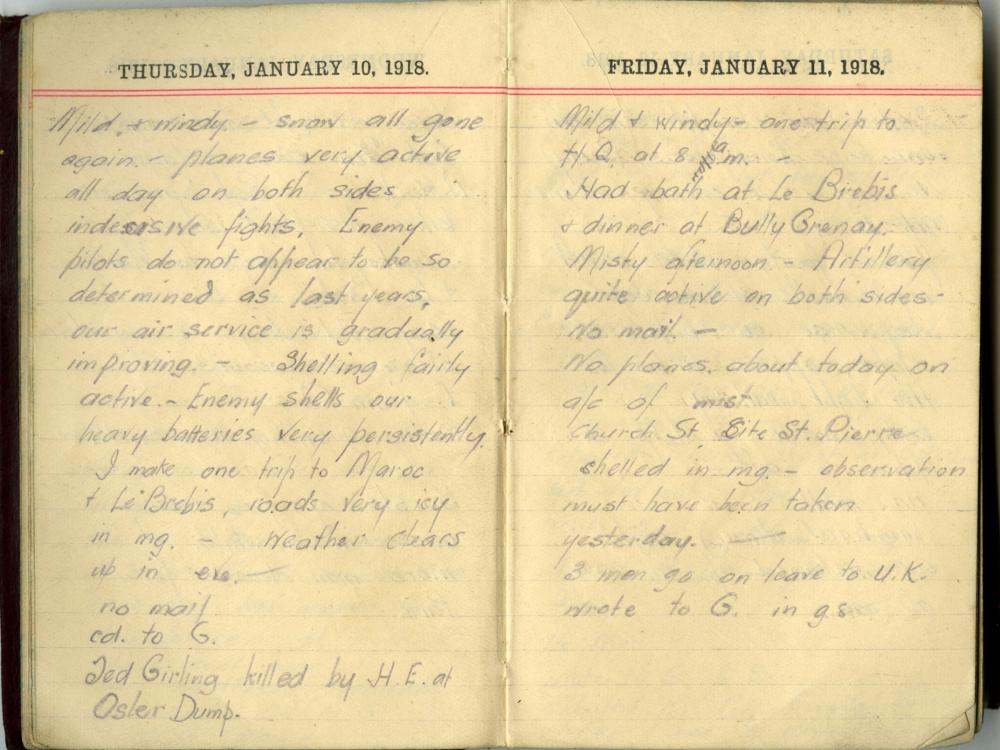 THURSDAY, JANUARY 10, 1918.
Mild + windy - snow all gone
again. - planes very active
all day on both sides
indecisive fights, Enemy
pilots do not appear to be so
determined as last years,
our air service is gradually
improving. - Shelling fairly
active. - Enemy shells our
heavy batteries very persistently.
I make one trip to Maroc
+ Le Brebis, roads very icy
in mg. - Weather clears
up in eve. -
no mail
cd. to G.
Ted Girling killed by H.E. at
Osler Dump.
FRIDAY, JANUARY 11, 1918.
Mild + windy - one trip to
H.Q. at 8 a.m. -
Had bath at Le Brebis
+ dinner at Bully Grenay.
Misty afernoon. - Artillery
quite active on both sides -
No mail. -
No planes. about today on
a/c of mist
Church. St. Eite St. Pierre
shelled in mg. - observation
must have been taken
yesterday.
3 men go on leave to U.K.
wrote to G. in g.s.